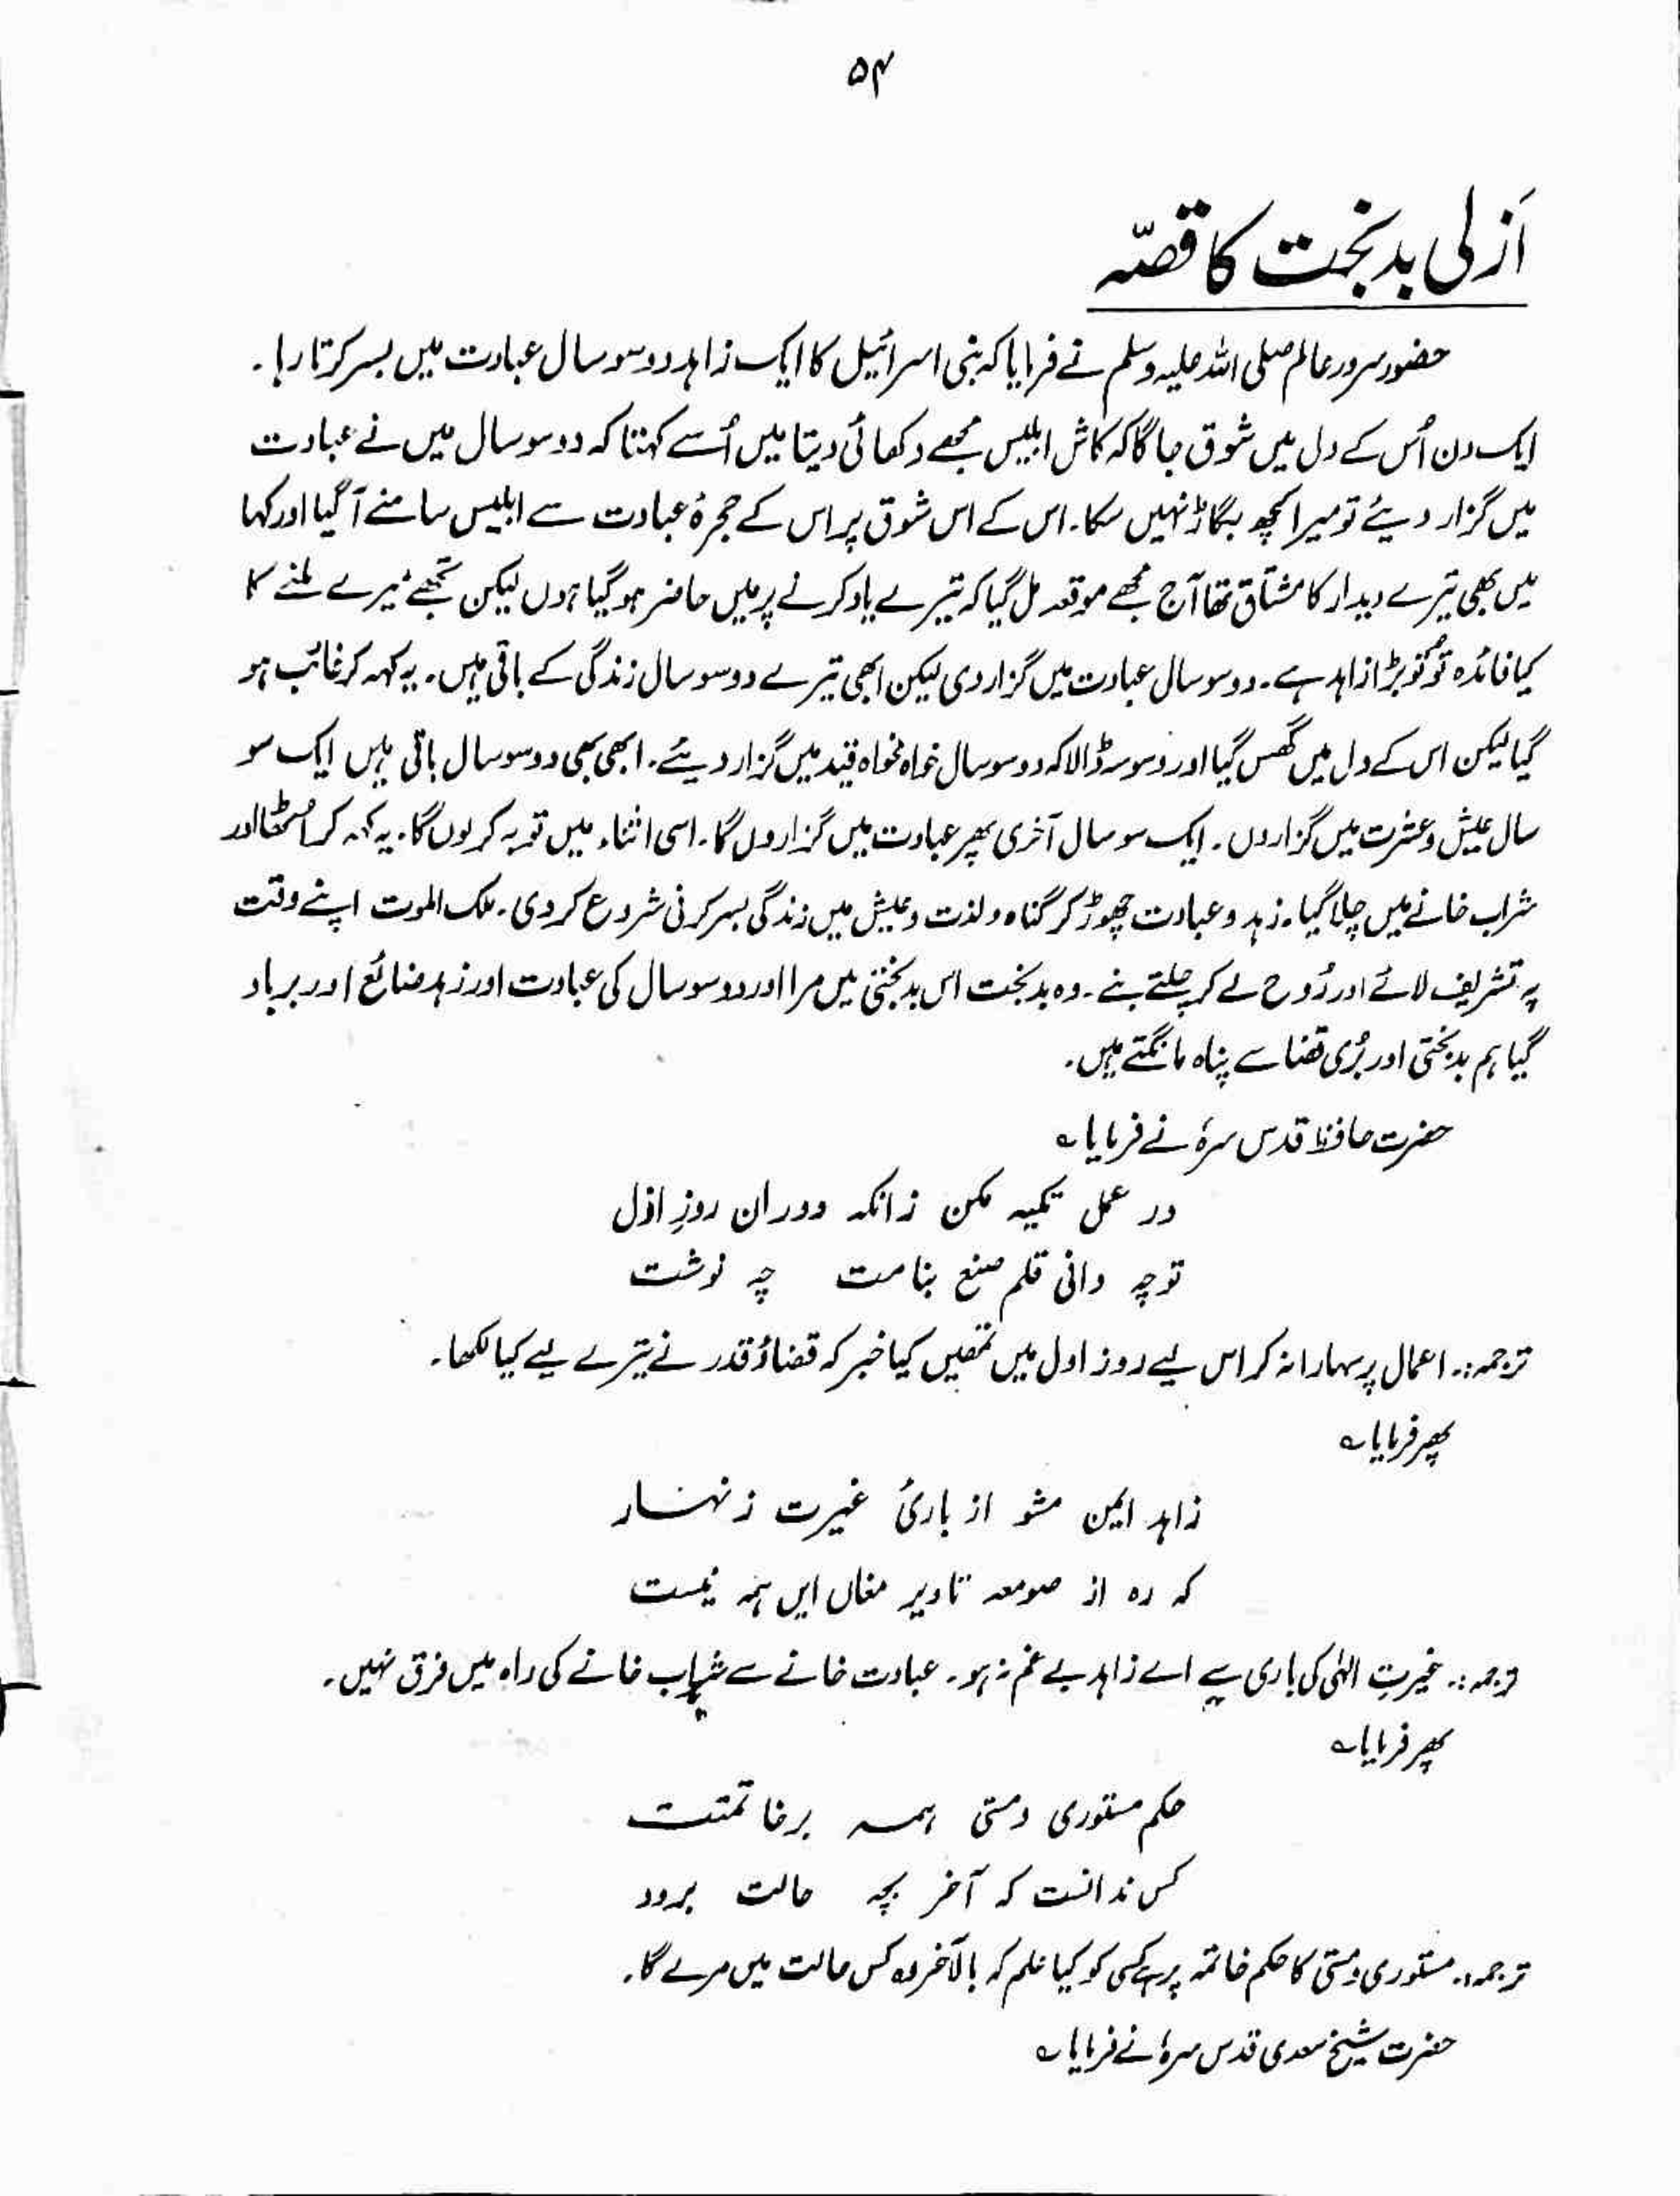 ۵۴
اَزلی بدبخت کا قصّہ
حضور سرور عالم صلی اللہ علیہ وسلم نے فرمایا کہ بنی اسرائیل کا ایک زاہد دو سو سال عبادت میں بسر کرتا رہا۔
ایک دن اُس کے دل میں شوق جاگا کہ کاش ابلیس مجھے دکھائی دیتا میں اُسے کہتا کہ دو سو سال میں نے عبادت
میں گزار دیئے تو میرا کچھ بگاڑ نہیں سکا۔ اس کے اس شوق پر اس کے حجرۂ عبادت سے ابلیس سامنے آگیا اور کہا
میں بھی تیرے دیدار کا مشتاق تھا آج مجھے موقعہ مل گیا کہ تیرے یاد کرنے پر میں حاضر ہوگیا ہوں لیکن تجھے میرے ملنے کا
کیا فائدہ تُو تو بڑا زاہد ہے۔ دو سو سال عبادت میں گزار دی لیکن ابھی تیرے دو سو سال زندگی کے باقی ہیں۔ یہ کہہ کر غائب ہو
گیا لیکن اس کے دل میں گھس گیا اور وسوسہ ڈالا کہ دو سو سال خواہ مخواہ قید میں گزار دیئے۔ ابھی بھی دو سو سال باقی ہیں ایک سو
سال عیش و عشرت میں گزاروں۔ ایک سو سال آخری پھر عبادت میں گزاروں گا۔ اسی اثناء میں توبہ کر لوں گا۔ یہ کہہ کر اُٹھا اور
شراب خانے میں چلا گیا۔ زہد و عبادت چھوڑ کر گناہ و لذت و عیش میں زندگی بسر کرنی شروع کر دی۔ ملک الموت اپنے وقت
پر تشریف لائے اور رُوح لے کر چلتے بنے۔ وہ بدبخت اس بدبختی میں مرا اور دو سو سال کی عبادت اور زہد ضائع اور برباد
گیا ہم بدبختی اور بُری قضا سے پناہ مانگتے ہیں۔
حضرت حافظ قدس سرہٗ نے فرمایا ؎
در عمل تکیہ مکن زانکہ دوران روزِ اوّل
تو چہ دانی قلم صنع بنامت چہ نوشت
ترجمہ:۔ اعمال پر سہارا نہ کر اس لیے روز اول میں تمھیں کیا خبر کہ قضاؤ قدر نے تیرے لیے کیا لکھا۔
پھر فرمایا ؎
زاہد ایمن مشو از باریٔ غیرت زنہار
کہ رہ از صومعہ تا دیر مغاں ایں ہمہ نیست
ترجمہ:۔ غیرتِ الٰہی کی باری سے اے زاہد بے غم نہ ہو۔ عبادت خانے سے شراب خانے کی راہ میں فرق نہیں۔
پھر فرمایا ؎
حکم مستوری و مستی ہمہ برخاتمتست
کس ندانست کہ آخر بچہ حالت برود
ترجمہ:۔ مستوری و مستی کا حکم خاتمہ پر ہے کسی کو کیا علم کہ بالآخر وہ کس حالت میں مرے گا۔
حضرت شیخ سعدی قدس سرہٗ نے فرمایا ؎